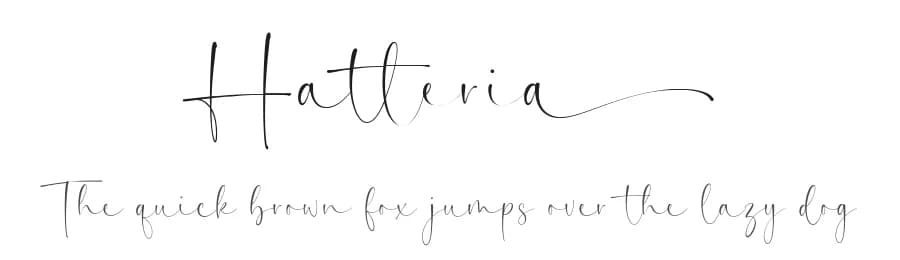 Hatteria
The quick brown fox jumps over the lazy dog